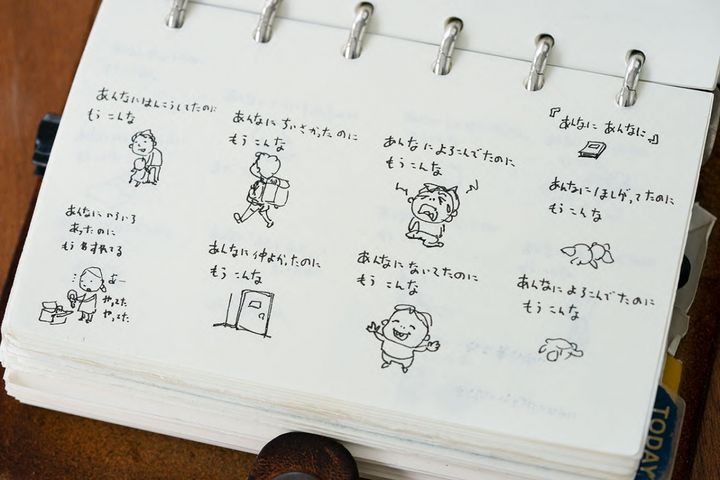 『あんなに あんなに』
あんなに ほしがってたのに
もう こんな
あんなに よろこんでたのに
もう こんな
あんなに よろこんでたのに
もう こんな
あんなに ないてたのに
もう こんな
あんなに ちいさかったのに
もう こんな
あんなに 仲よかったのに
もう こんな
あんなにはんこうしてたのに
もう こんな
あんなに いろいろ
あったのに
もう わすれてる
あー
やってた
やってた
TODAY